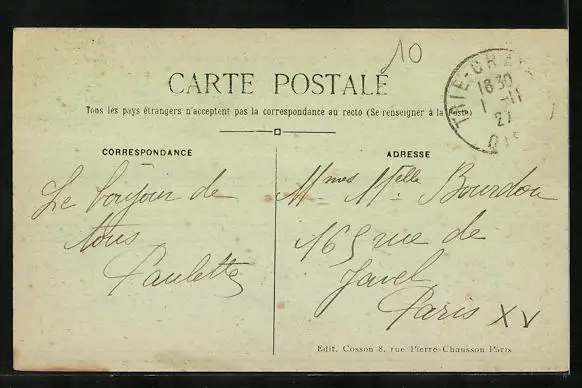 10
CARTE POSTALE
Tous les pays étrangers n'acceptent pas la correspondance au recto (Se renseigner à la Poste)
TRIE-CH
16 30
1 -11
27
OISE
CORRESPONDANCE
Le bonjour de
tous
Paulette
ADRESSE
Mmes Melle Bourdon
165 rue de
Javel
Paris XV
Edit. Cosson 8, rue Pierre-Chausson Paris